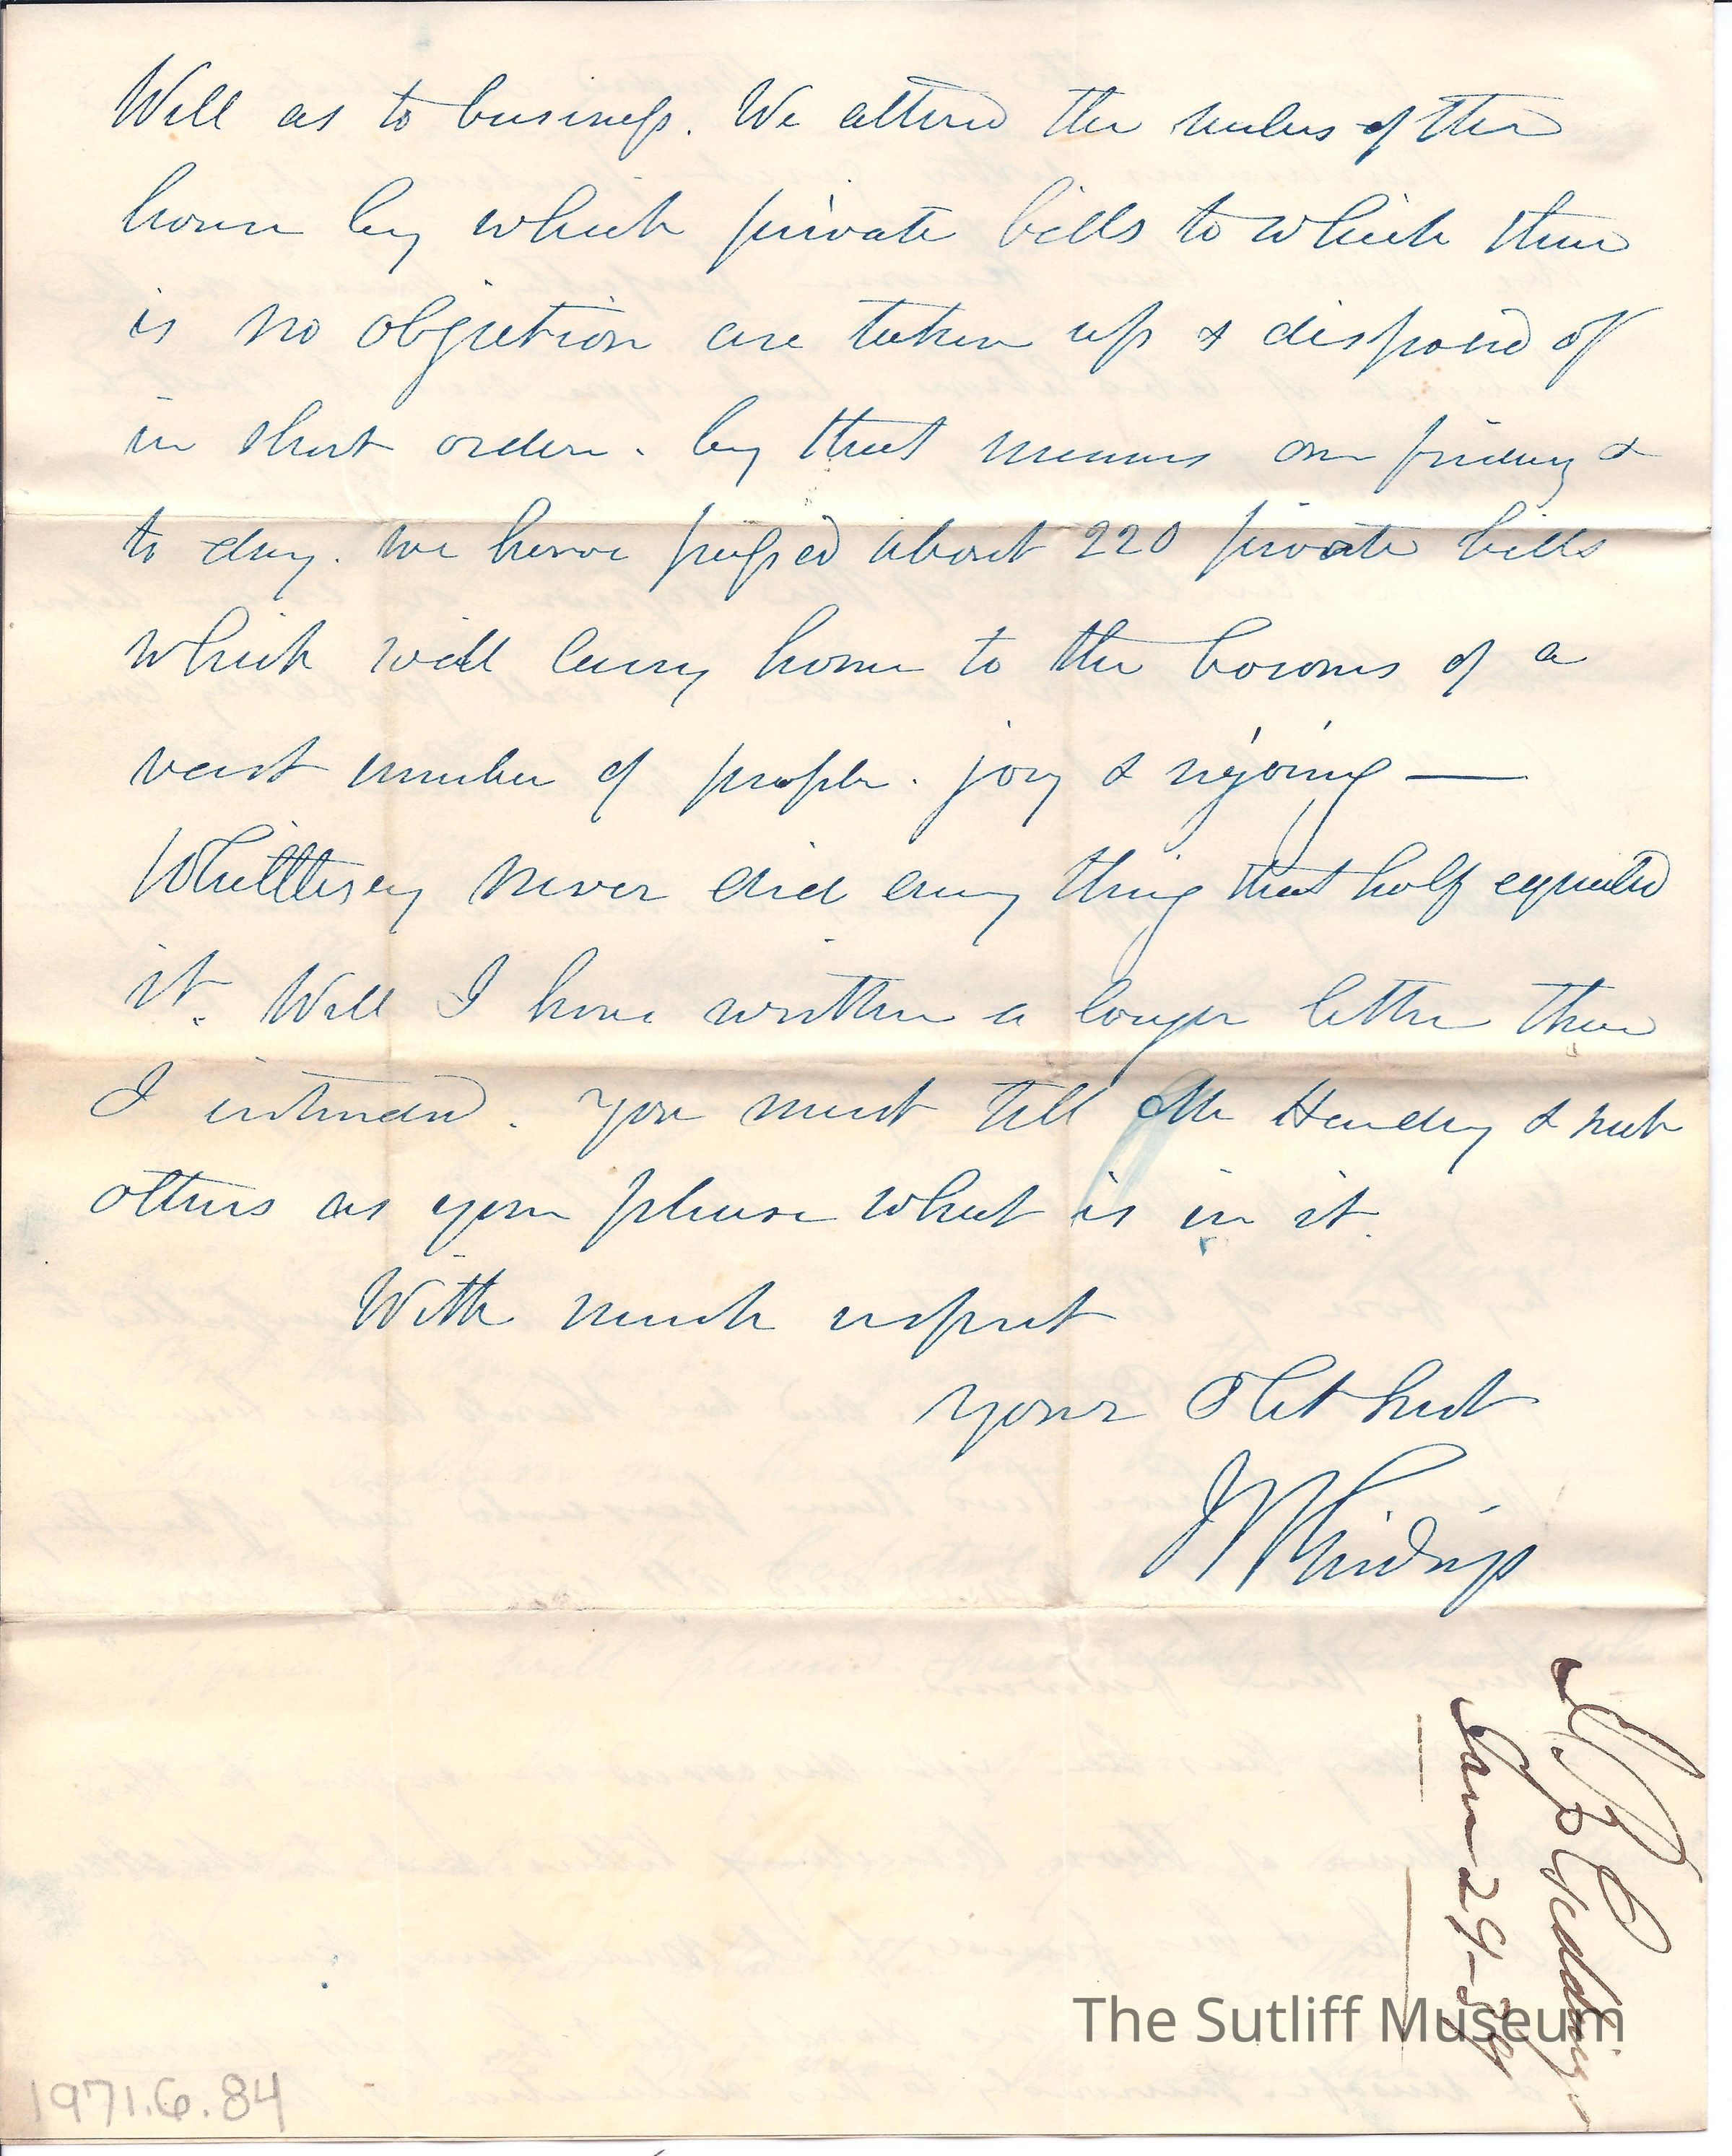 Well as to business. We altered the rules of the
house by which private bills to which there
is no objection are taken up & disposed of
in short order. by that means on friday &
to day. we have passed about 220 private bills
which will carry home to the bosoms of a
vast number of people. joy & rejoicing —
Whittlesey never did any thing that half equaled
it. Well I have written a longer letter than
I intended. You must tell Mr Hendry & such
others as you please what is in it.
With much respect
your Obt Svt
J R Giddings
J R Giddings
Jan 29-39
The Sutliff Museum
1971.6.84